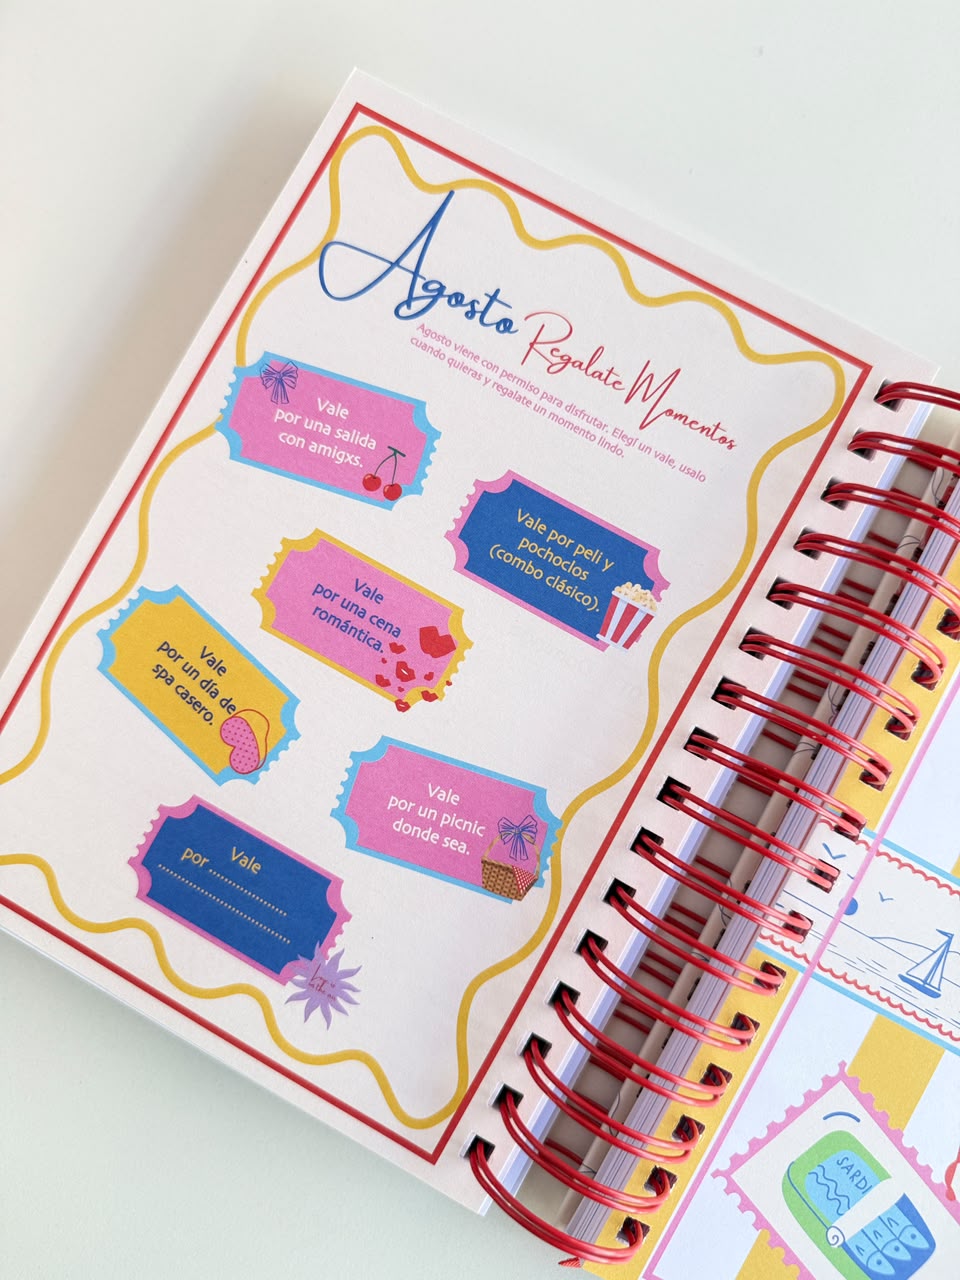 Agosto Regalate Momentos
Agosto viene con permiso para disfrutar. Elegí un vale, usalo
cuando quieras y regalate un momento lindo.
Vale
por una salida
con amigxs.
Vale por peli y
pochoclos
(combo clásico).
Vale
por una cena
romántica.
Vale
por un día de
spa casero.
Vale
por un picnic
donde sea.
Vale
por
SARDI